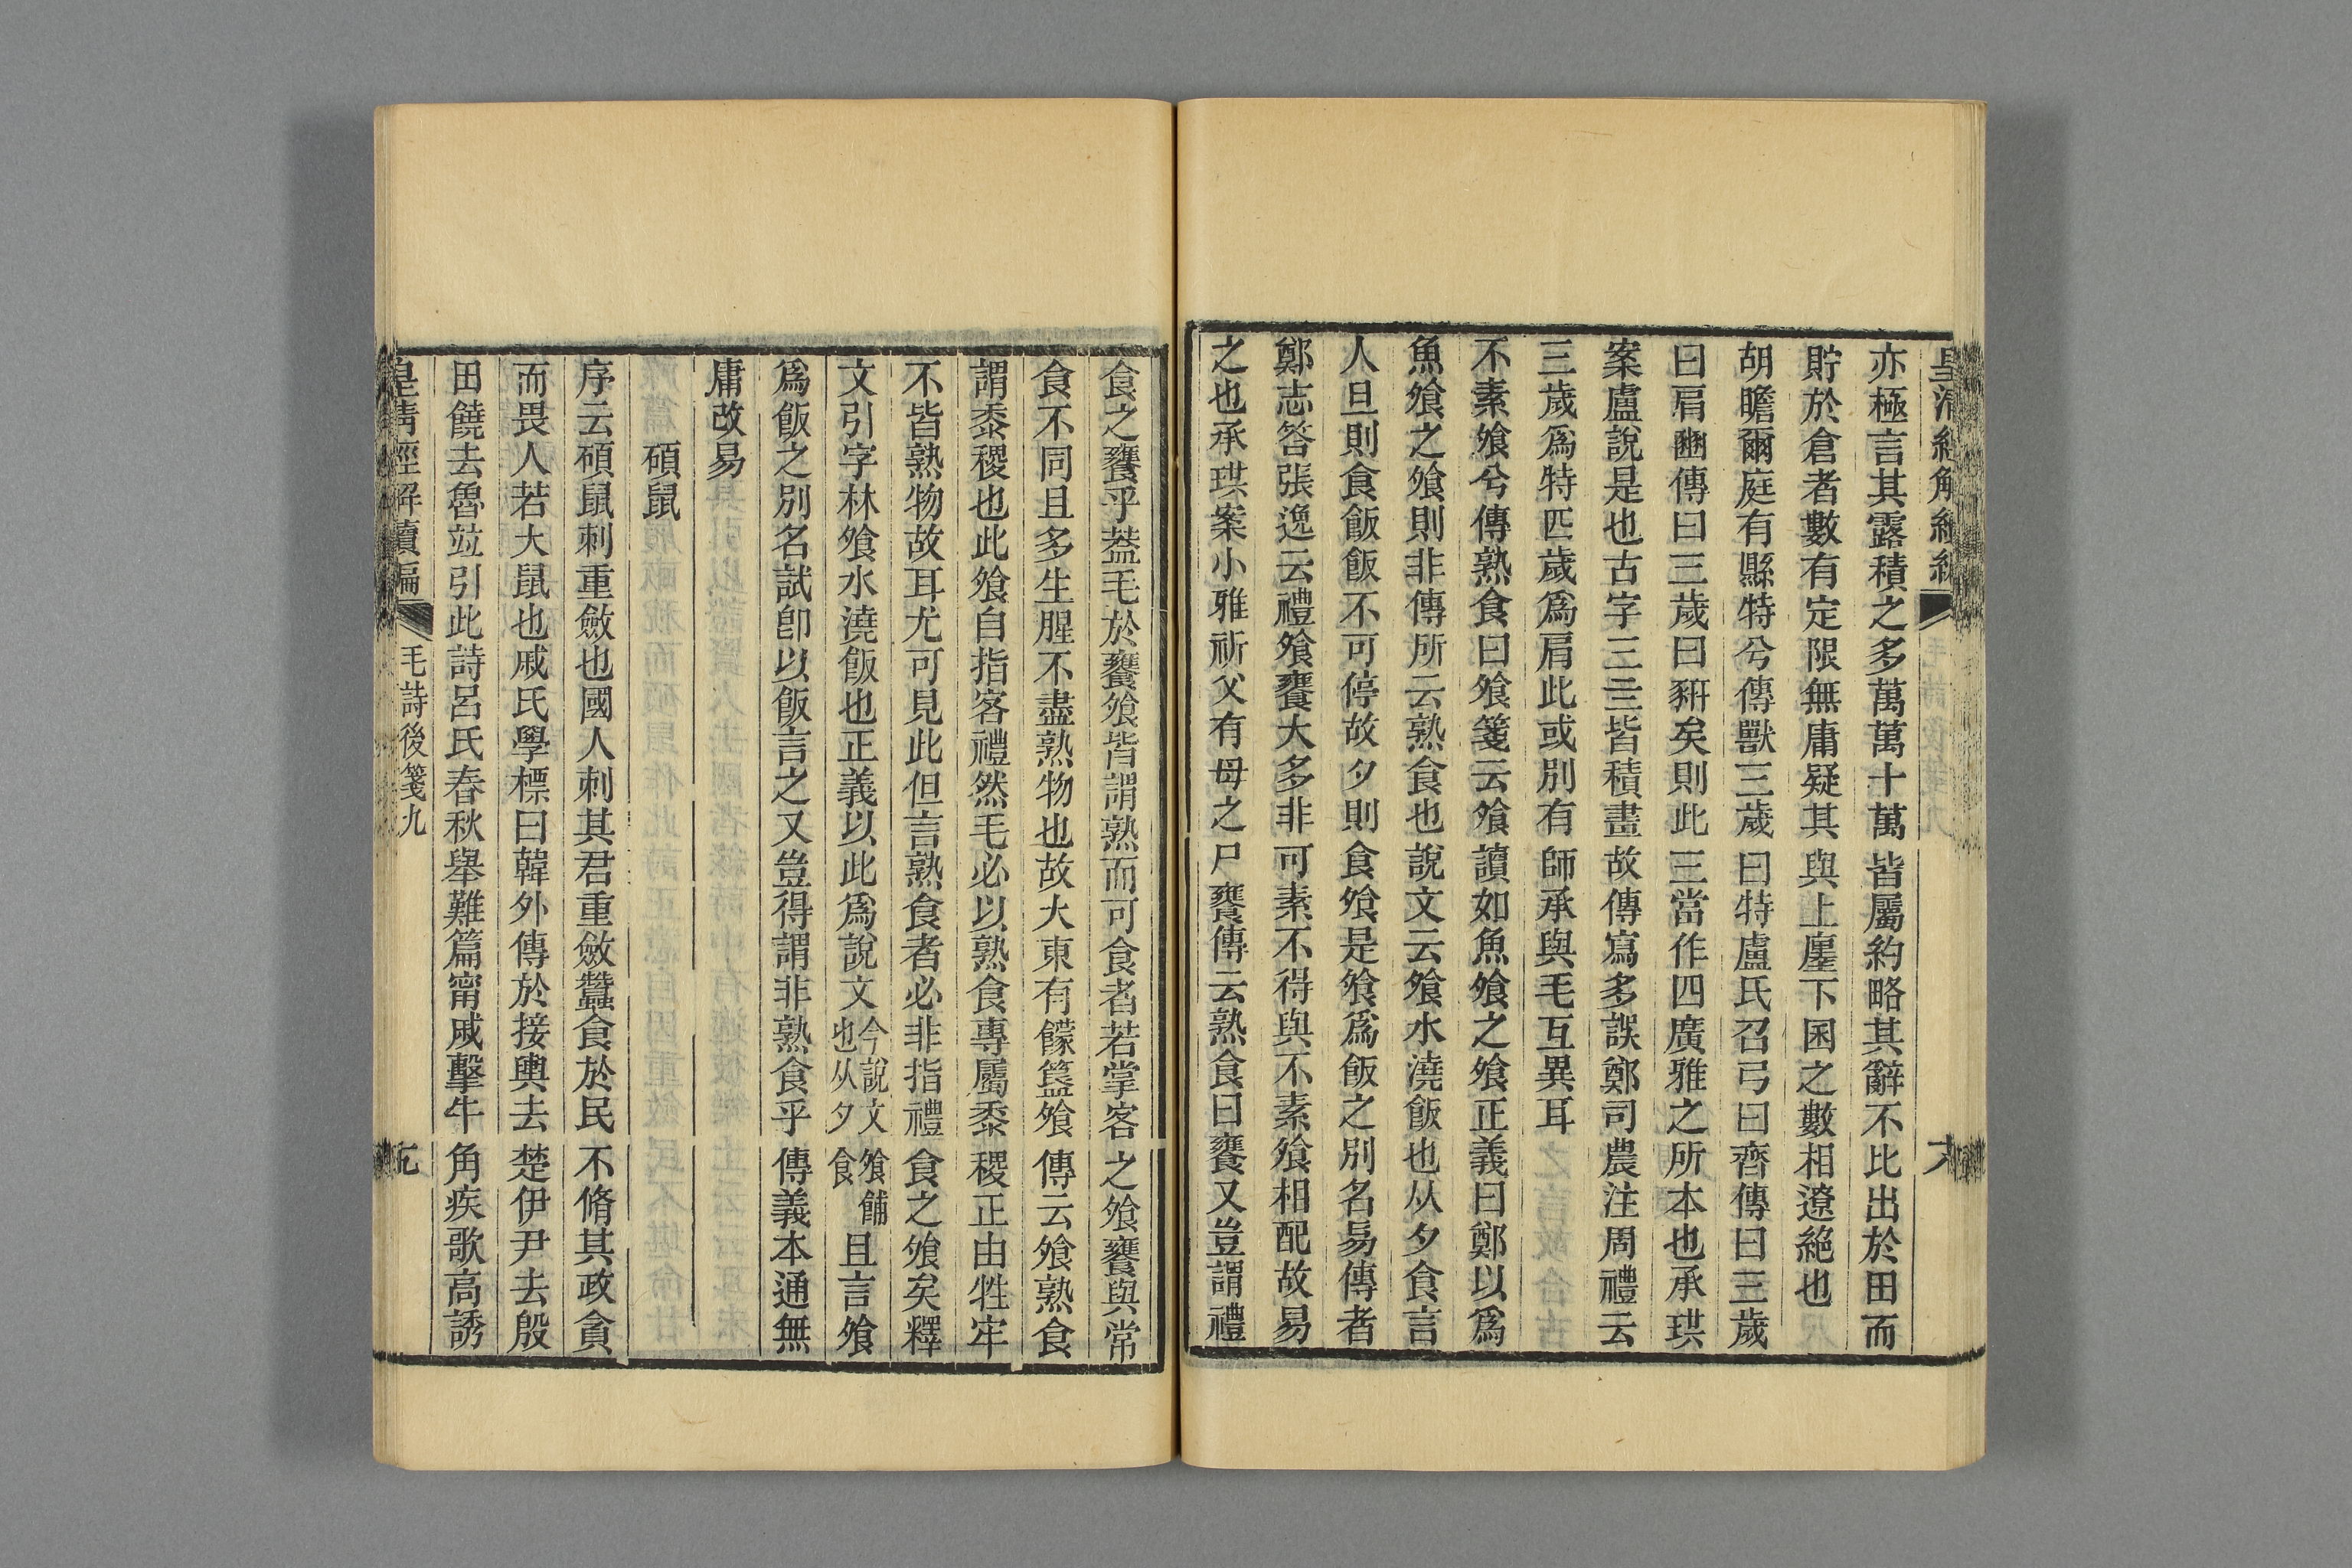 皇清經解續編
六
亦極言其露積之多萬萬十萬皆屬約略其辭不比出於田而
貯於倉者數有定限無庸疑其與上廛下囷之數相遼絕也
胡瞻爾庭有縣特兮傳獸三歲曰特盧氏召弓曰齊傳曰三歲
曰肩豳傳曰三歲曰豜矣則此三當作四廣雅之所本也承珙
案盧說是也古字三亖皆積畫故傳寫多誤鄭司農注周禮云
三歲爲特四歲爲肩此或別有師承與毛互異耳
不素飧兮傳熟食曰飧箋云飧讀如魚飧之飧正義曰鄭以爲
魚飧之飧則非傳所云熟食也說文云飧水澆飯也从夕食言
人旦則食飯飯不可停故夕則食飧是飧爲飯之別名易傳者
鄭志答張逸云禮飧饔大多非可素不得與不素飧相配故易
之也承珙案小雅祈父有母之尸饔傳云熟食曰饔又豈謂禮
食之饔乎葢毛於饔飧皆謂熟而可食者若掌客之飧饔與常
食不同且多生腥不盡熟物也故大東有饛簋飧傳云飧熟食
謂黍稷也此飧自指客禮然毛必以熟食專屬黍稷正由牲牢
不皆熟物故耳尤可見此但言熟食者必非指禮食之飧矣釋
文引字林飧水澆飯也正義以此爲說文今說文飧餔也从夕食且言飧
爲飯之別名試卽以飯言之又豈得謂非熟食乎傳義本通無
庸改易
碩鼠
序云碩鼠刺重斂也國人刺其君重斂蠶食於民不脩其政貪
而畏人若大鼠也戚氏學標曰韓外傳於接輿去楚伊尹去殷
田饒去魯竝引此詩呂氏春秋舉難篇甯戚擊牛角疾歌高誘
皇淸經解續編
毛詩後箋九